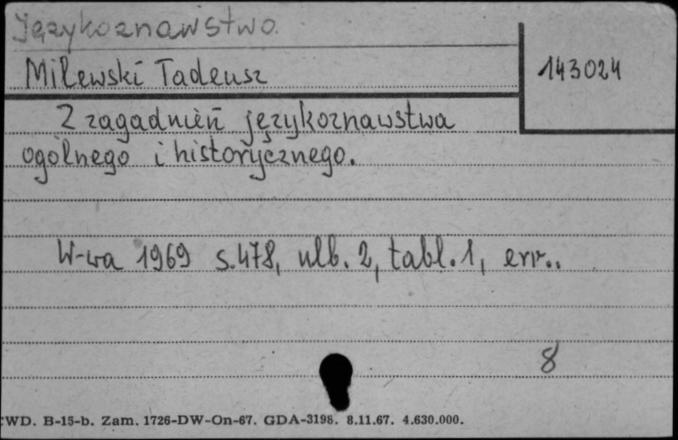 Językoznawstwo.
Milewski Tadeusz
143024
Z zagadnień językoznawstwa
ogólnego i historycznego.
W-wa 1969 s.478, nlb. 2, tabl.1, err..
8
CWD. B-15-b. Zam. 1726-DW-On-67. GDA-3198. 8.11.67. 4.630.000.